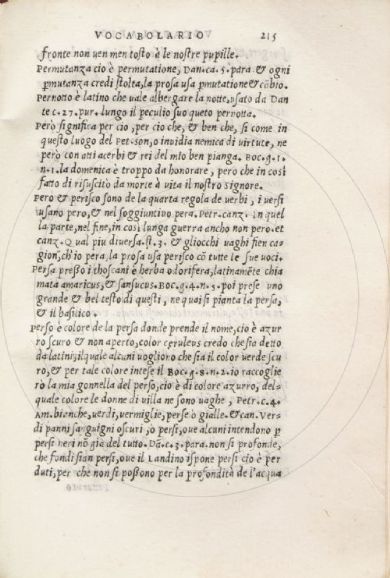 VOCABOLARIO 215
fronte non uen men tosto è le nostre pupille.
Permutanza cio è permutatione, Dan.ca.5.para. & ogni
pmutanza credi stolta, la prosa usa pmutatione & cãbio.
Pernotto è latino che uale albergare la notte, usato da Dan
te c.27.pur. lungo il peculio suo queto pernotta.
Però significa per cio, per cio che, & ben che, si come in
questo luogo del Pet. son, o inuidia nemica di uirtute, ne
però con atti acerbi & rei del mio ben pianga. Boc.g.1.
n.1. la domenica è troppo da honorare, pero che in cosi
fatto di risuscitò da morte à uita il nostro Signore.
Pero & perisco sono de la quarta regola de uerbi, i uersi
usano pero, & nel soggiuntiuo pera. Petr.canz. in quel
la parte, nel fine, in cosi lunga guerra ancho non pero. et
canz. Qual piu diuersa. st.3. & gliocchi uaghi fien ca
gion, ch'io pera, la prosa usa perisco cõ tutte le sue uoci.
Persa presso i thoscani è herba odorifera, latinamẽte chia
mata amaricus, & sansucus. Boc.g.4.n.5. poi prese uno
grande & bel testo di questi, ne quai si pianta la persa,
& il basilico.
Perso è colore de la persa donde prende il nome, cio è azur
ro scuro & non aperto, color cęruleus credo che sia detto
da latini, il quale alcuni uogliono che sia il color uerde scu
ro, & per tale colore intese il Boc.g.8.n.2. io raccoglie
rò la mia gonnella del perso, cio è di colore azurro, del-
quale colore le donne di uilla ne sono uaghe, Petr.c.4.
Am. bianche, uerdi, uermiglie, perse ò gialle. & can. Ver-
di panni sanguigni oscuri, o persi, oue alcuni intendono p
persi neri nõ già del tutto. Dã.c.3.para. non si profonde,
che fondi sian persi, oue il Landino ispone persi cio è per
duti, per che non si possono per la profondità de l'acqua